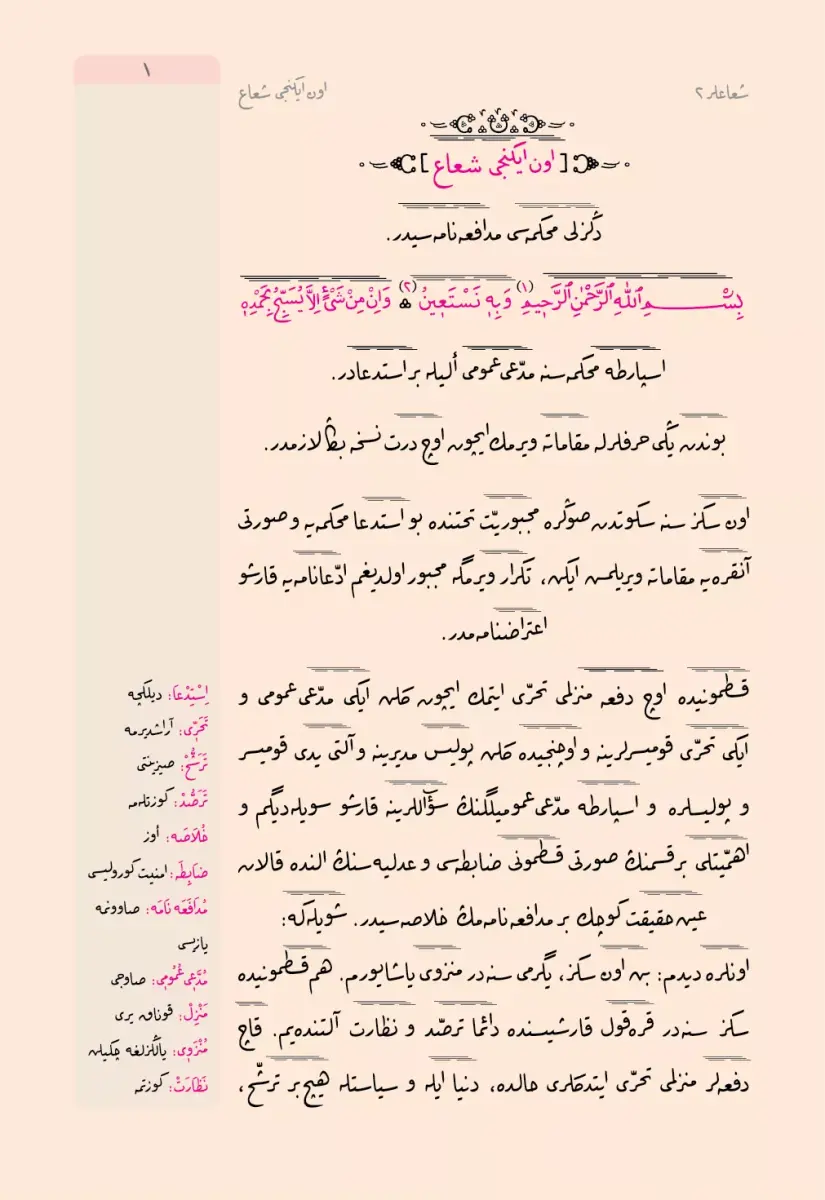 شعاعلر ٢
اون ايكنجى شعاع
١
[اون ايكنجى شعاع]
دڭزلى محكمه‌سى مدافعه‌نامه‌سيدر.
بِسْمِ اللّٰهِ الرَّحْمٰنِ الرَّحِيمِ (١) وَبِهِ نَسْتَعِينُ (٢) وَاِنْ مِنْ شَيْءٍ اِلاَّ يُسَبِّحُ بِحَمْدِهِ
اسپارطه محكمه‌سنه مدّعى عمومى أليله بر استدعادر.
بوندن يڭى حرفلرله مقاماته ويرمك ايچون اوچ درت نسخه لازمدر.
اون سكز سنه سكوتدن صوڭره مجبوريّت تحتنده بو استدعا محكمه‌يه و صورتى
آنقره‌يه مقاماته ويريلمس ايكن، تكرار ويرمگه مجبور اولديغم ادّعانامه‌يه قارشو
اعتراضنامه‌مدر.
قسطمونيده اوچ دفعه منزلمى تحرّى ايتمك ايچون كلن ايكى مدّعى عمومى و
ايكى تحرّى قوميسرلرينه و اوچنجيده كلن پوليس مديرينه و آلتى يدى قوميسر
و پوليسلره و اسپارطه مدّعى عموميلگنڭ سؤاللرينه قارشو سويله‌ديگم و
اهمّيتلى بر قسمنڭ صورتى قسطمونى ضابطه‌سى و عدليه‌سنڭ النده قالان
عين حقيقت كوچك بر مدافعه‌نامه‌مڭ خلاصه‌سيدر. شويله كه:
اونلره ديدم: بن اون سكز، يگرمى سنه‌در منزوى ياشايورم. هم قسطمونيده
سكز سنه‌در قره‌قول قارشيسنده دائما ترصّد و نظارت آلتنده‌يم. قاچ
دفعه‌لر منزلمى تحرّى ايتدكلرى حالده، دنيا ايله و سياستله هيچ بر ترشّح،
اِسْتِدْعَا: ديلكچه
تَحَرِّى: آراشديرمه
تَرَشُّحْ: صيزينتى
تَرَصُّدْ: كوزتله‌مه
خُلَاصَه: اوز
ضَابِطَه: امنيت كوروليسى
مُدَافَعَه نَامَه: صاوونمه
يازيسى
مُدَّعِى عُمُومِى: صاوجى
مَنْزِلْ: قوناق يرى
مُنْزَوِى: يالڭزلغه چكيلن
نَظَارَتْ: كوزتمه